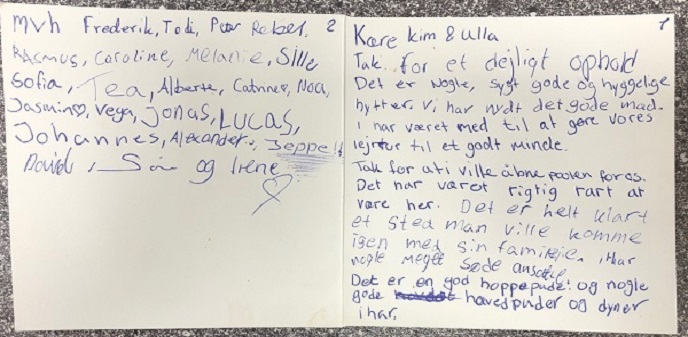 1
Kære Kim & Ulla
Tak for et dejligt ophold
Det er nogle, sygt gode og hyggelige
hytter. Vi har nydt det gode mad.
i har været med til at gøre vores
lejrtur til et godt minde.
Tak for at i ville åbne poolen for os.
Det har været rigtig rart at
være her. Det er helt klart
et sted man ville komme
igen med sin familieje. i har
nogle meget søde ansatte
Det er en god hoppepude! og nogle
gode hovedpuder og dyner
i har.
2
Mvh Frederik, Todi, Peter
Rasmus, Caroline, Melanie, Sille
Sofia, Tea, Alberte, Catinnes, Noa,
Jasmin, Vega, Jonas, LUCAS,
Johannes, Alexander, Jeppe!!
David, og Irene